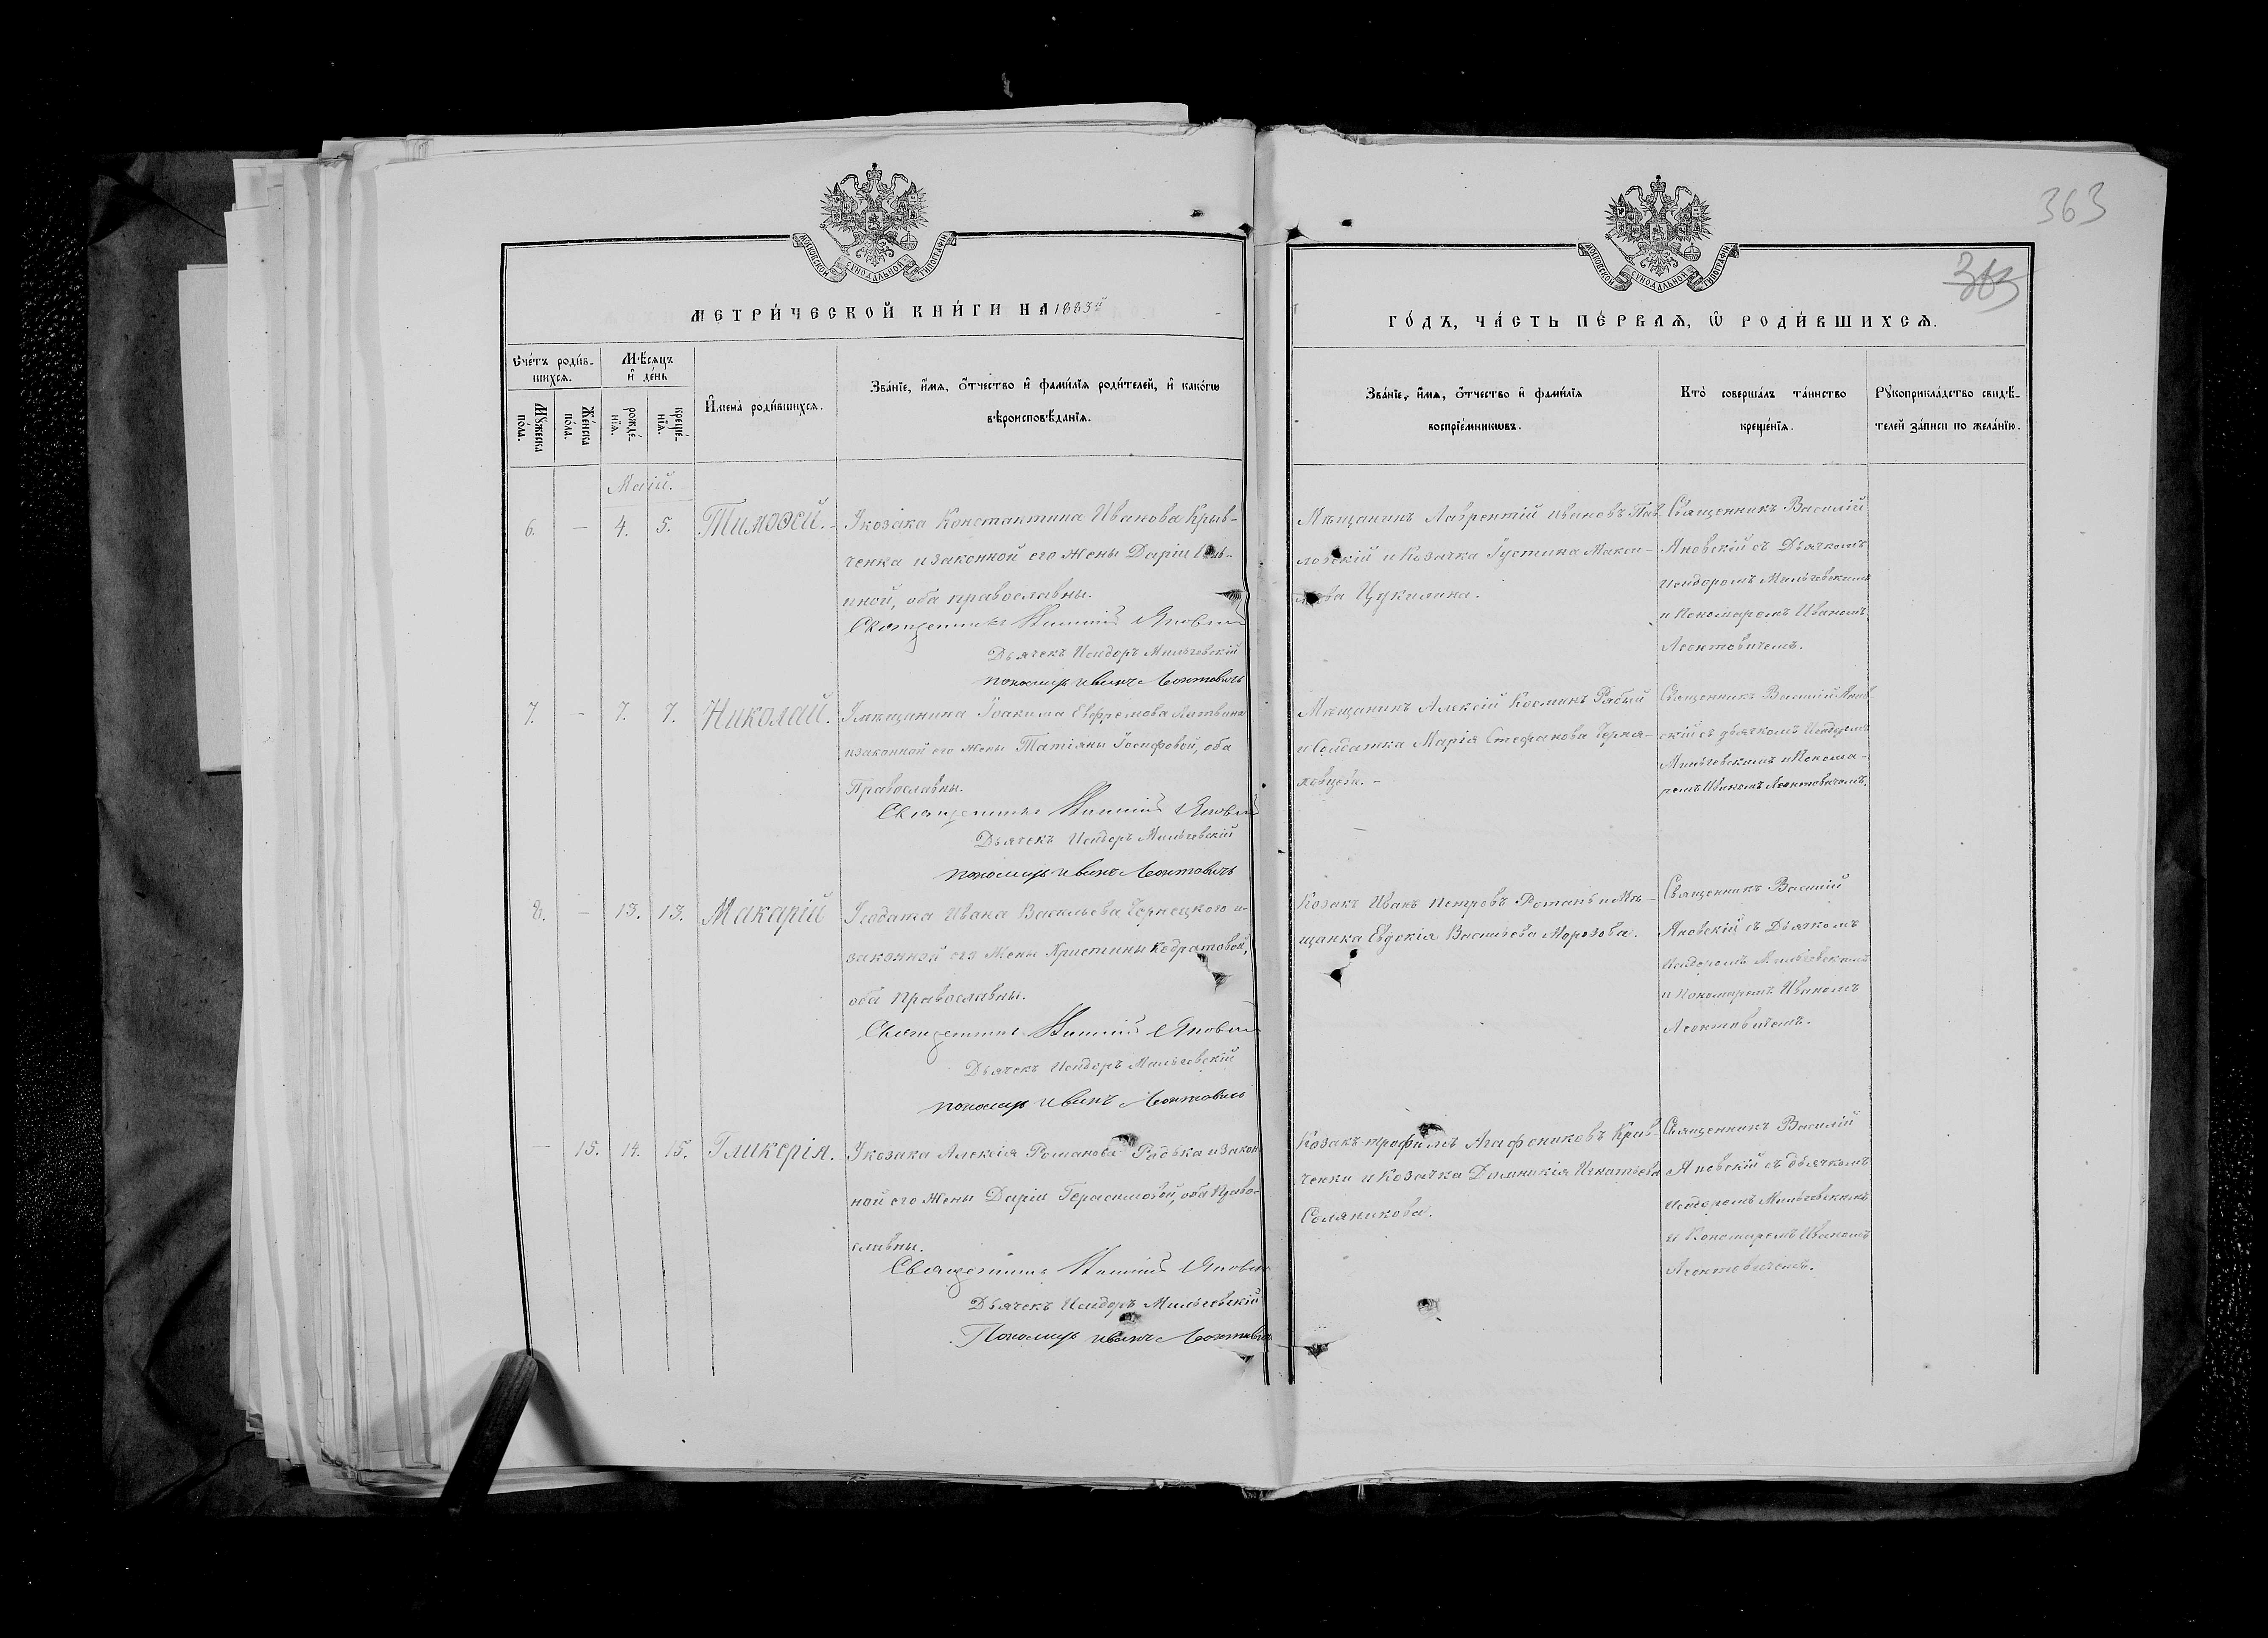 363
363
МОСКОВСКОЙ СУНОДАЛЬНОЙ ТИПОГРАФІИ
МОСКОВСКОЙ СУНОДАЛЬНОЙ ТИПОГРАФІИ
МЕТРИ́ЧЕСКОЙ КНИ́ГИ НА 1883й
ГО́ДЪ, ЧА́СТЬ ПЕ́РВАѦ, Ѿ РОДИ́ВШИХСѦ.
Сче́тъ роди́в-
шихсѧ.
Мѣ́сѧцъ
и҆ де́нь
Мꙋ́жеска
по́ла.
Же́нска
по́ла.
рожде́-
нїѧ.
креще́-
нїѧ.
И҆мена̀ роди́вшихсѧ.
Зва́нїе, и҆́мѧ, ѻ҆́тчество и҆ фами́лїѧ роди́телей, и҆ како́гѡ
вѣроисповѣ́данїѧ.
Зва́нїе, и҆́мѧ, ѻ҆́тчество и҆ фами́лїѧ
воспрїе́мникѡвъ.
Кто̀ соверша́лъ та́инство
креще́нїѧ.
Рꙋкоприкла́дство свидѣ́-
телей за́писи по жела́нїю.
Маій.
6. — 4. 5. Тимоѳей. -
У козака Константина Иванова Крыв-
ченка и законной его жены Даріи
иной, оба православны.
Священникъ Василій Яновскій
Дьячекъ Исидоръ Мильчевскій
пономарь Иванъ Леонтовичъ
Мѣщанинъ Лаврентій Ивановъ Пав-
ловскій и Козачка Іустина Макси-
мова Цукилина.
Священникъ Василій
Яновскій съ Дьячкомъ
Исидоромъ Мильчевскимъ
и Пономаремъ Иваномъ
Леонтовичемъ.
7. — 7. 7. Николай.
У мѣщанина Іоакима Евфремова Литвина
и законной его жены Татіяны Іосифовой, оба
Православны.
Священникъ Василій Яновскій
Дьячекъ Исидоръ Мильчевскій
пономарь Иванъ Леонтовичъ
Мѣщанинъ Алексій Косминъ Рябый
и Солдатка Марія Стефанова Черня-
ховцева. -
Священникъ Василій Янов-
скій съ дьячкомъ Исидоромъ
Мильчевскимъ и Понома-
ремъ Иваномъ Леонтовичемъ.
8. — 13. 13. Макарій
У солдата Ивана Васильева Чернецкого и
законной его Жены Христины Кодратовой,
оба Православны.
Священникъ Василій Яновскій
Дьячекъ Исидоръ Мильчевскій
пономарь Иванъ Леонтовичъ
Козакъ Иванъ Петровъ Ротань и Мѣ-
щанка Евдокія Васильева Морозова.
Священникъ Василій
Яновскій съ Дьячкомъ
Исидоромъ Мильчевскимъ
и Пономаремъ Иваномъ
Леонтовичемъ.
— 15. 14. 15. Гликерія.
У козака Алексія Романова Радька и закон
ной его Жены Даріи Герасимовой, оба Право-
славны.
Священникъ Василій Яновскій
Дьячекъ Исидоръ Мильчевскій
Пономарь Иванъ Леонтовичъ
Козакъ трофимъ Агафониковъ Крив-
ченки и Козачка Домникія Игнатьева
Соляникова.
Священникъ Василій
Яновскій съ дьячкомъ
Исидоромъ Мильчевскимъ
и Пономаремъ Иваномъ
Леонтовичемъ.